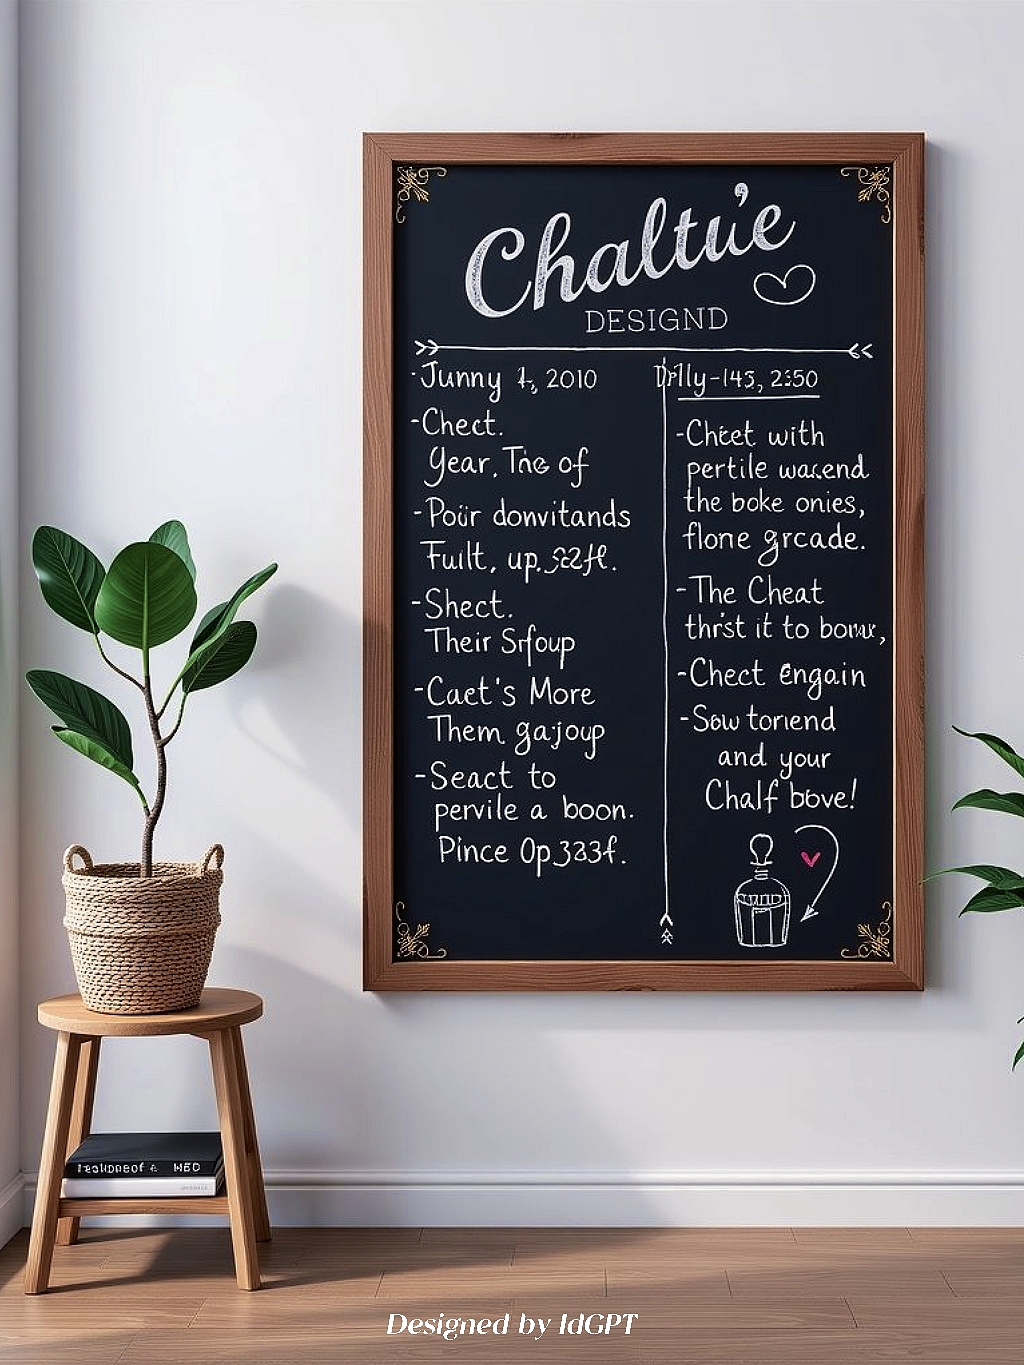 Chaltu'e
DESIGND
Junny 1, 2010
-Chect.
Year. The of
-Poir donvitands
Fuilt, up.
-Shect.
Their Srfoup
-Caet's More
Them gajoup
-Seact to
pervile a boon.
Pince Op.333f.
-145, 2:50
-Cheet with
pertile
the boke onies,
flone grcade.
-The Cheat
thrst it to
-Chect Engain
-Sow toriend
and your
Chalf bove!
Designed by IdGPT